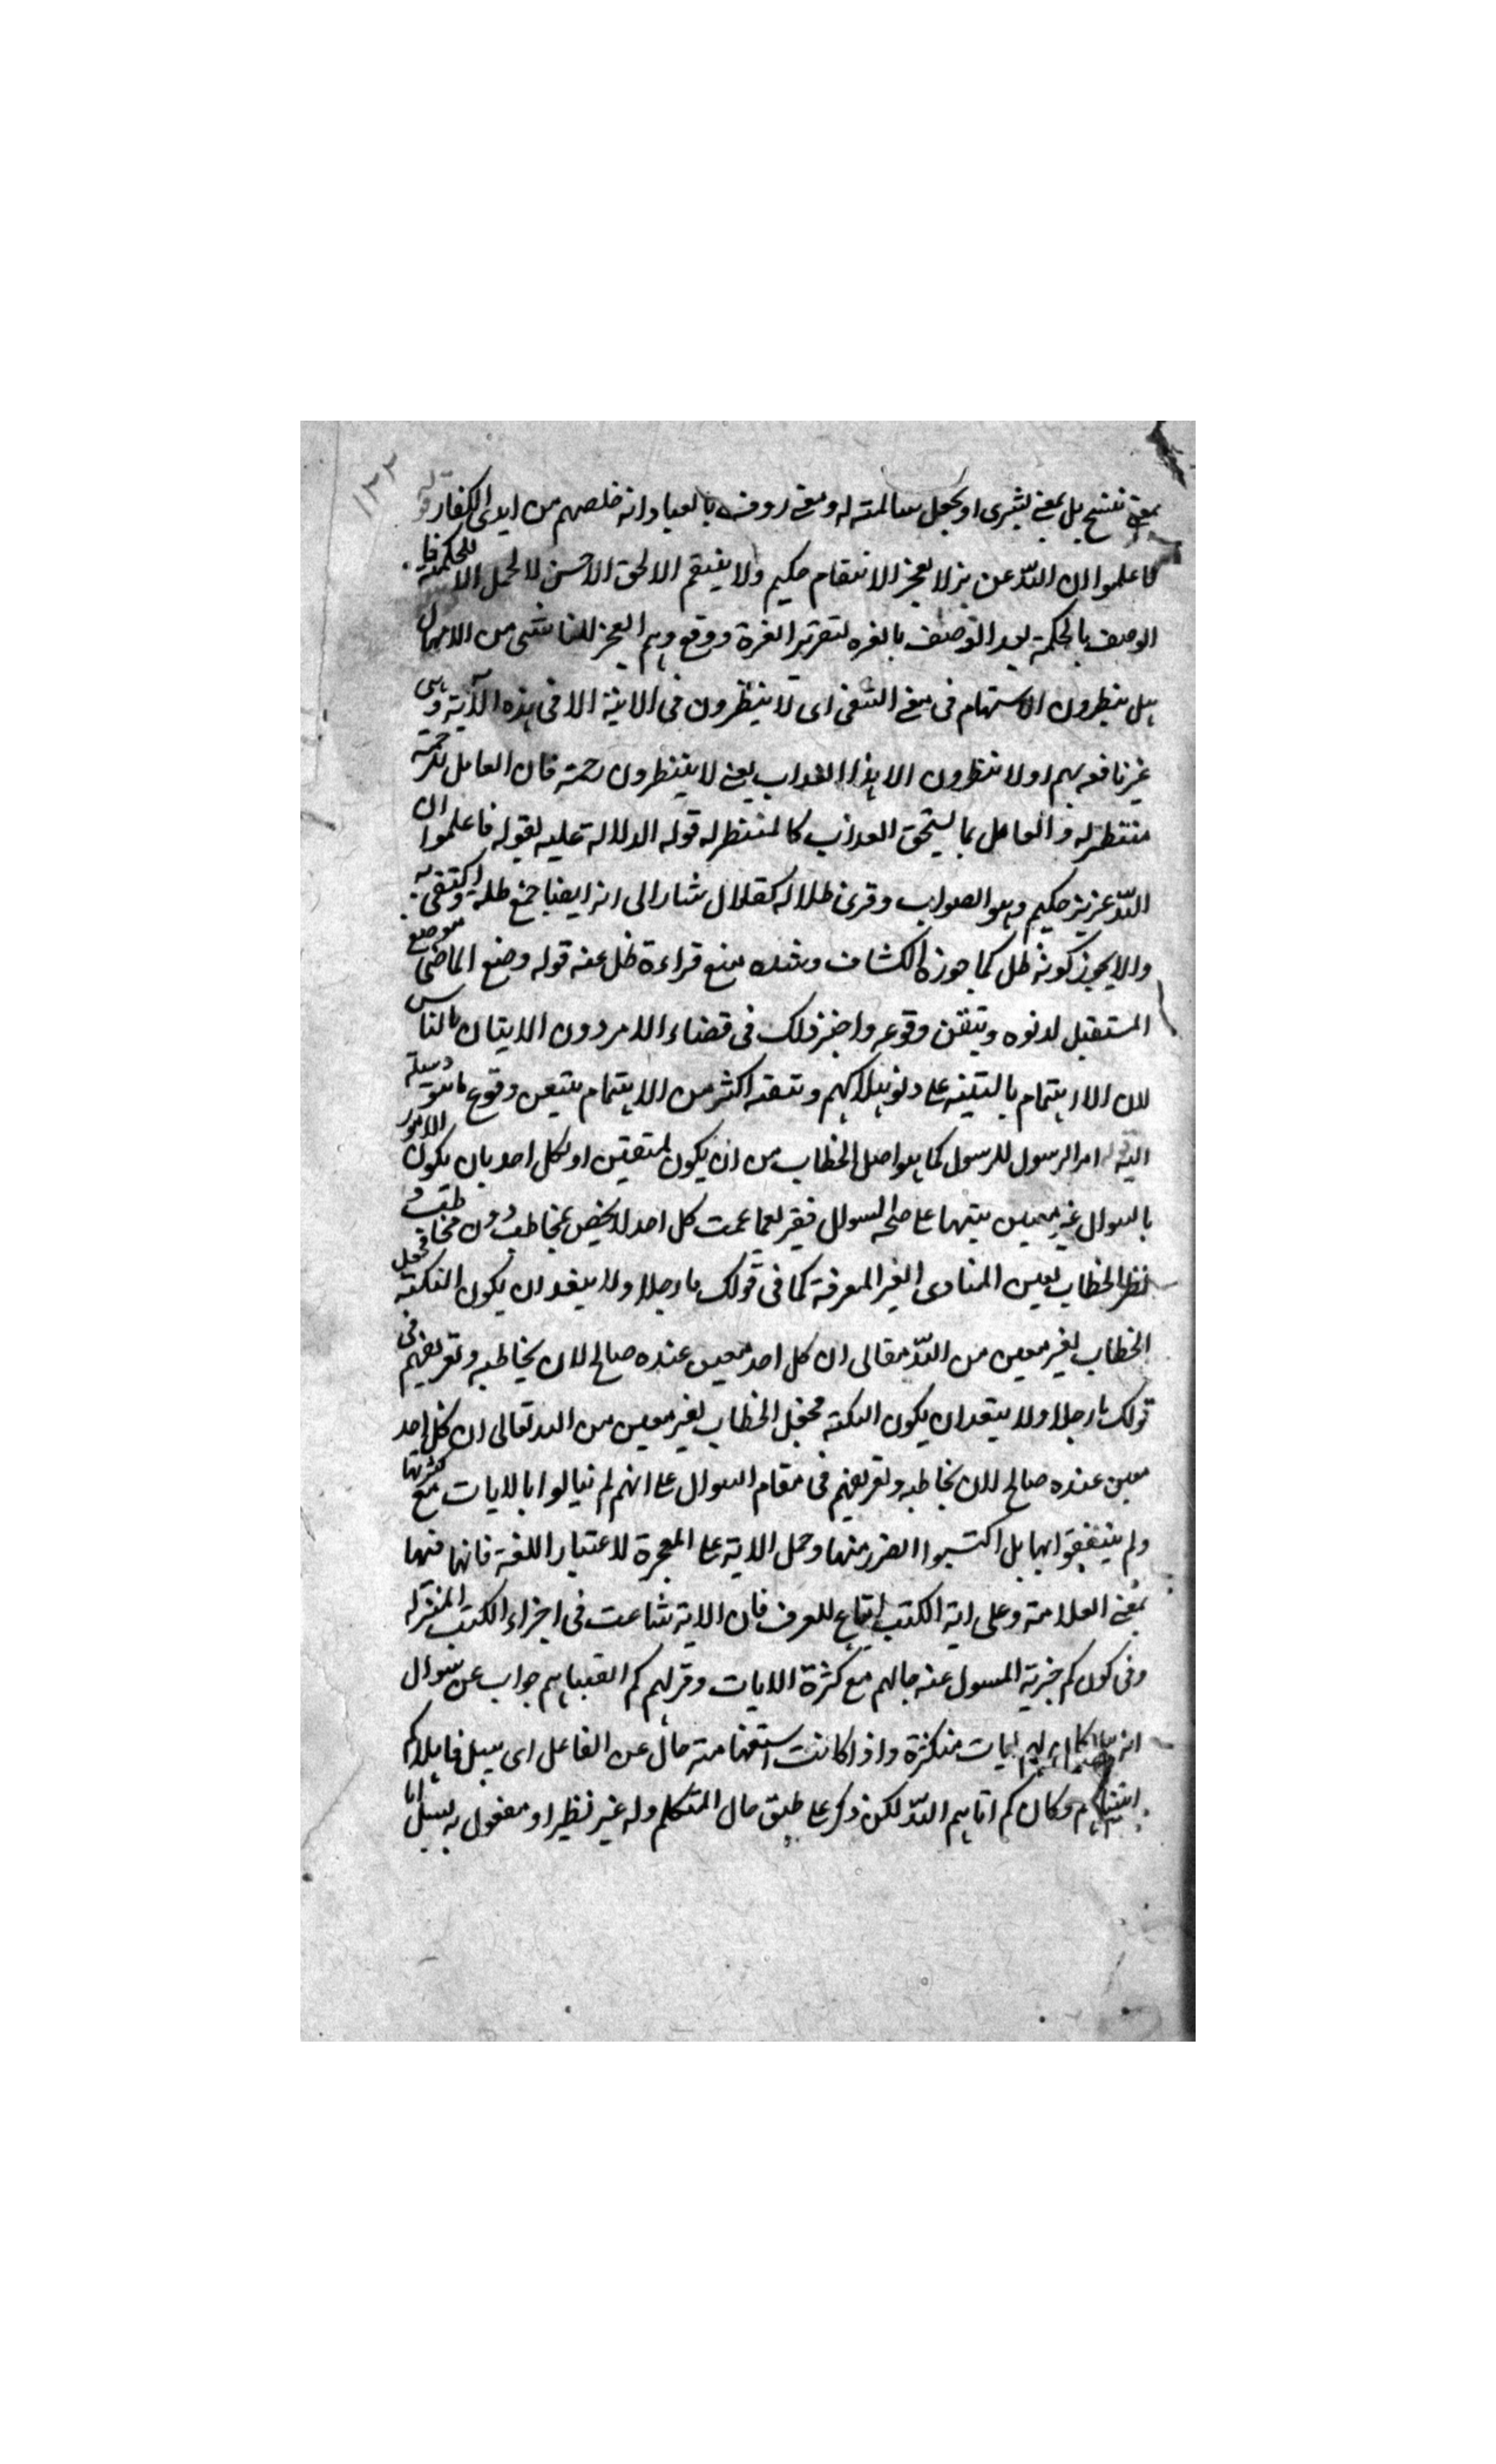 ١٢٢
بمعنى نفتتح بل بمعنى يشرى او يجعل سالمته له ومعنى روف بالعباد انه خلصهم من ايدى الكفار قوله
فاعلموا ان الله عزيز لا يعجزه الانتقام حكيم ولا ينتقم الا لحق الاحسن لا لحمل الا للحكمة فا
الوصف بالحكمة بعد التوصيف بالعزه لتقرير العزة ودفع وهم العجز الناشى من الامهال
هل ينظرون الاستفهام فى معنى النفى اى لا ينظرون فى الاتية الا فى هذه الآية وهى
غير نافعة بهم او لا ينتظرون الا هذا العذاب يعنى لا ينتظرون رحمة فان العامل للرحمة
منتظر له والعامل بما يستحق العذاب كالمنتظر له قوله الدلالة عليه لقوله فاعلموا ان
الله عزيز حكيم وهو الصواب وقرئ ظلال كقلال شار الى انه ايضا جمع ظلة واكتفى به
والا يجوز كونه ظل كما جوزه الكشاف وعنده يمنع قراءة ظل عنه قوله وضع الماضى موضع
المستقبل لدنوه وتيقن وقوعه واختر ذلك فى قضاء الامر دون الاتيان بالناس
لان الاهتمام بالتنبيه على دنو هلاكهم وتيقنه اكثر من الاهتمام بتيقن وقوع
امر الرسول للرسول كما هو اصل الخطاب من ان يكون لمتعين او لكل احد بان يكون الامور
بالسوال غير معين تنبيها على السوال فيقر لعما عمت كل احد لا يخص بمخاطب دون مخاطب و
نظر الخطاب بعين المنادى الغير المعرفة كما فى قولك يا رجلا ولا يبعد ان يكون النكتة فجعل
الخطاب لغير معين من الله تعالى ان كل احد معين عنده صالح لان يخاطبه وتعريضهم فى
قولك يا رجلا ولا يبعد ان يكون النكتة فجعل الخطاب لغير معين من الله تعالى ان كل احد
معين عنده صالح لان يخاطبه وتعريضهم فى مقام السوال على انهم لم يبالوا بالايات مع كثرتها
ولم ينتفعوا بها بل اكتسبوا الضرر منها وحمل الاية على المعجزة لاعتبار اللغة فانها فيها
بمعنى العلامة وعلى اية الكتب اتباع للعرف فان الاية شاعت فى اجزاء الكتب المنزله
وفى كون كم خبرية المسول عنه حالهم مع كثرة الايات وقولهم كم اتيناهم جواب عن سوال
انه ايات متكثرة واذا كانت استفهامته حال عن الفاعل اى سل قايلا كم
اتيناهم وكان كم اتاهم الله لكن ذكر على طبق حال المتكلم وله غير نظير او مفعول به لسيل ايا